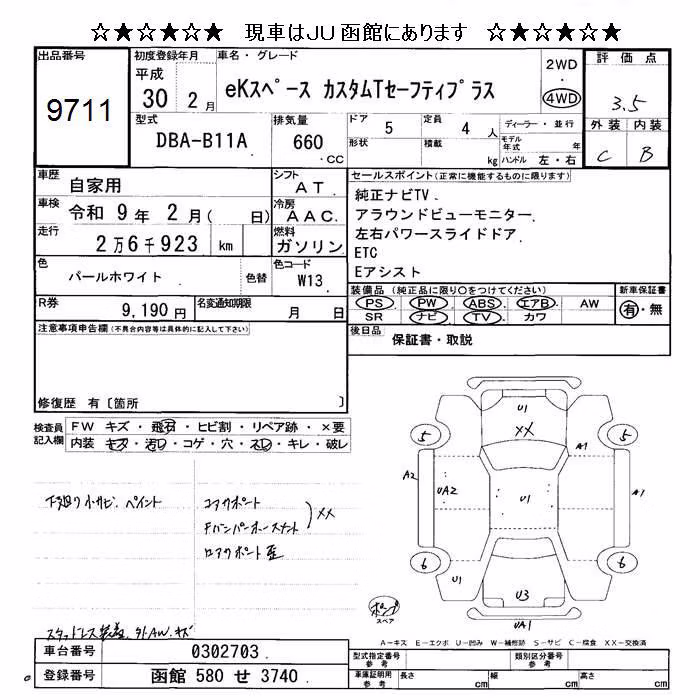 ☆★☆★☆★ 現車はJU函館にあります ☆★☆★☆★
出品番号 9711
初度登録年月 平成 30 2月
車名・グレード eKスペース カスタムTセーフティプラス
2WD ・ 4WD
評価点 3.5
型式 DBA-B11A
排気量 660 .CC
ドア 5 定員 4 人
形状 積載 kg
ディーラー・並行
モデル年式 年
ハンドル 左・右
外装 内装
C B
車歴 自家用
シフト AT.
車検 令和 9年 2月( 日)
冷房 AAC.
走行 2万6千923 km
燃料 ガソリン.
色 パールホワイト 色替
色コード W13
R券 9,190円
名変通知期限 月 日
セールスポイント(正常に機能するものに限ります)
純正ナビTV
アラウンドビューモニター.
左右パワースライドドア.
ETC
Eアシスト
装備品 (純正品に限り○をつけてください)
PS PW ABS エアB AW
SR ナビ TV カワ
新車保証書 有・無
後日品 保証書・取説
注意事項申告欄(不具合内容等は具体的に記入して下さい)
修復歴 有〔箇所 〕
検査員記入欄
FW キズ・飛石・ヒビ割・リペア跡・×要
内装 キズ・汚レ・コゲ・穴・スレ・キレ・破レ
下廻り小サビ.ペイント
コアサポート
Fバンパーホースメント
XX
ロアサポート歪
スタッドレス装着.
U1
XX
5 5
A2 UA2 U1 A1 A1
6 6
U1
U3
UA1
スペア
A-キズ E-エクボ U-凹み W-補修跡 S-サビ C-腐食 XX-交換済
車台番号 0302703.
登録番号 函館 580 せ 3740.
型式指定番号 参考
類別区分番号 参考
車庫証明用 参考 長さ cm 幅 cm 高さ cm